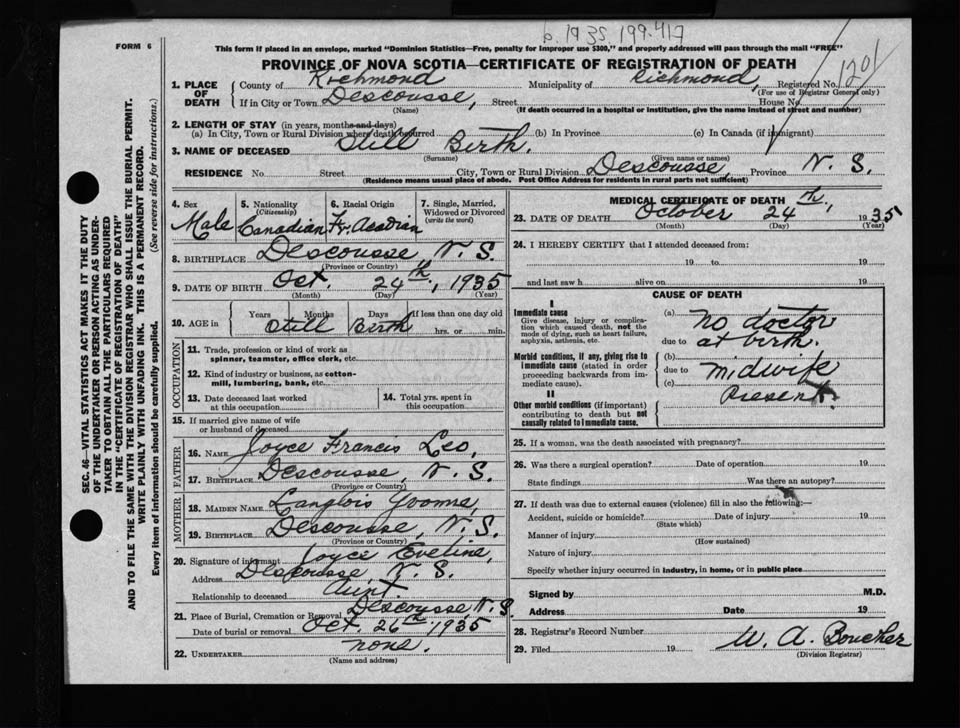 b. 1935 199.417
FORM 6
This form if placed in an envelope, marked "Dominion Statistics—Free, penalty for improper use $300," and properly addressed will pass through the mail "FREE"
PROVINCE OF NOVA SCOTIA—CERTIFICATE OF REGISTRATION OF DEATH
1. PLACE OF DEATH County of Richmond Municipality of Richmond, Registered No. 1201
(For use of Registrar General only)
If in City or Town Descousse, Street House No.
(Name) (If death occurred in a hospital or institution, give the name instead of street and number)
2. LENGTH OF STAY (in years, months and days)
(a) In City, Town or Rural Division where death occurred (b) In Province (c) In Canada (if immigrant)
3. NAME OF DECEASED Still Birth.
(Surname) (Given name or names)
RESIDENCE No Street City, Town or Rural Division Descousse, Province N. S.
(Residence means usual place of abode. Post Office Address for residents in rural parts not sufficient)
4. Sex 5. Nationality (Citizenship) 6. Racial Origin 7. Single, Married, Widowed or Divorced (write the word)
Male Canadian Fr. Acadian
8. BIRTHPLACE Descousse, N. S.
(Province or Country)
9. DATE OF BIRTH Oct. 24th, 1935
(Month) (Day) (Year)
10. AGE in Years Months Days If less than one day old
Still Birth hrs. or min.
OCCUPATION
11. Trade, profession or kind of work as spinner, teamster, office clerk, etc.
12. Kind of industry or business, as cotton-mill, lumbering, bank, etc.
13. Date deceased last worked at this occupation
14. Total yrs. spent in this occupation
15. If married give name of wife or husband of deceased
FATHER
16. NAME Joyce Francis Leo,
17. BIRTHPLACE Descousse, N. S.
(Province or Country)
MOTHER
18. MAIDEN NAME Langlois Yvonne,
19. BIRTHPLACE Descousse, N. S.
(Province or Country)
20. Signature of informant Joyce Eveline,
Address Descousse, N. S.
Relationship to deceased Aunt.
21. Place of Burial, Cremation or Removal Descousse, N. S.
Date of burial or removal Oct. 26th, 1935
22. UNDERTAKER none.
(Name and address)
MEDICAL CERTIFICATE OF DEATH
23. DATE OF DEATH October 24th, 1935
(Month) (Day) (Year)
24. I HEREBY CERTIFY that I attended deceased from:
19 to 19
and last saw h alive on 19
CAUSE OF DEATH
I
Immediate cause
Give disease, injury or complication which caused death, not the mode of dying, such as heart failure, asphyxia, asthenia, etc.
(a) no doctor
due to at birth.
Morbid conditions, if any, giving rise to immediate cause (stated in order proceeding backwards from immediate cause).
(b)
due to midwife
(c) Present.
II
Other morbid conditions (if important) contributing to death but not causally related to immediate cause.
25. If a woman, was the death associated with pregnancy?
26. Was there a surgical operation? Date of operation 19
State findings Was there an autopsy?
27. If death was due to external causes (violence) fill in also the following:—
Accident, suicide or homicide? Date of injury 19
(State which)
Manner of injury
(How sustained)
Nature of injury
Specify whether injury occurred in industry, in home, or in public place
Signed by M.D.
Address Date 19
28. Registrar's Record Number
29. Filed 19 W. A. Boucher
(Division Registrar)
SEC. 46—VITAL STATISTICS ACT MAKES IT THE DUTY
OF THE UNDERTAKER OR PERSON ACTING AS UNDER-
TAKER TO OBTAIN ALL THE PARTICULARS REQUIRED
IN THE "CERTIFICATE OF REGISTRATION OF DEATH"
AND TO FILE THE SAME WITH THE DIVISION REGISTRAR WHO SHALL ISSUE THE BURIAL PERMIT.
WRITE PLAINLY WITH UNFADING INK. THIS IS A PERMANENT RECORD.
Every item of information should be carefully supplied. (See reverse side for instructions.)